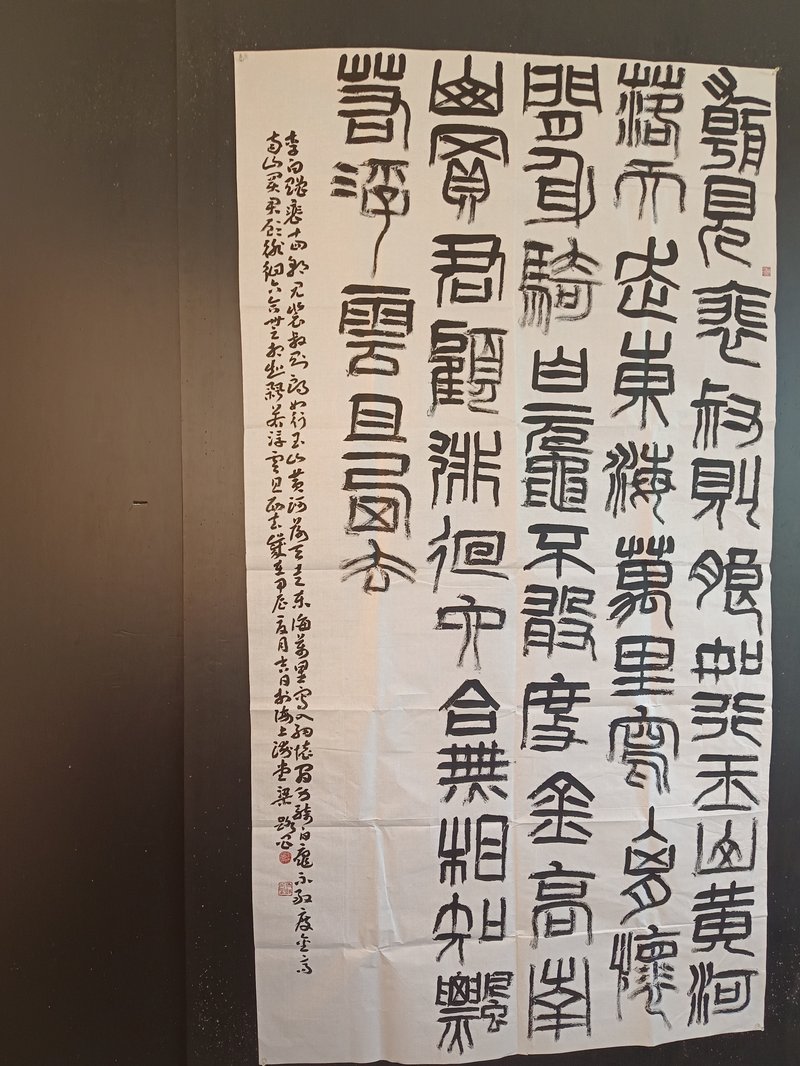 朝見裴叔則朗如行玉山黄河
落天走東海萬里寫入胸懷
間身騎白黿不敢度金高南
山買君顧徘徊六合無相知飄
若浮雲且西去
李白贈裴十四朝見裴叔則朗如行玉山黄河落天走東海萬里寫入胸懷間身騎白黿不敢度金高
南山買君顧徘徊六合無相知飄若浮雲且西去歲在甲辰夏月吉日於海上